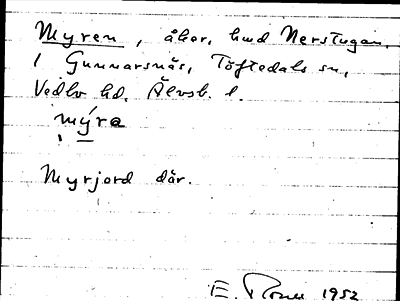 Myren, åker, hmd Nerstugan,
i Gunnarsnäs, Töftedals sn,
Vedbo hd. Älvsb. l.
mýra
Myrjord där.
E. 1952